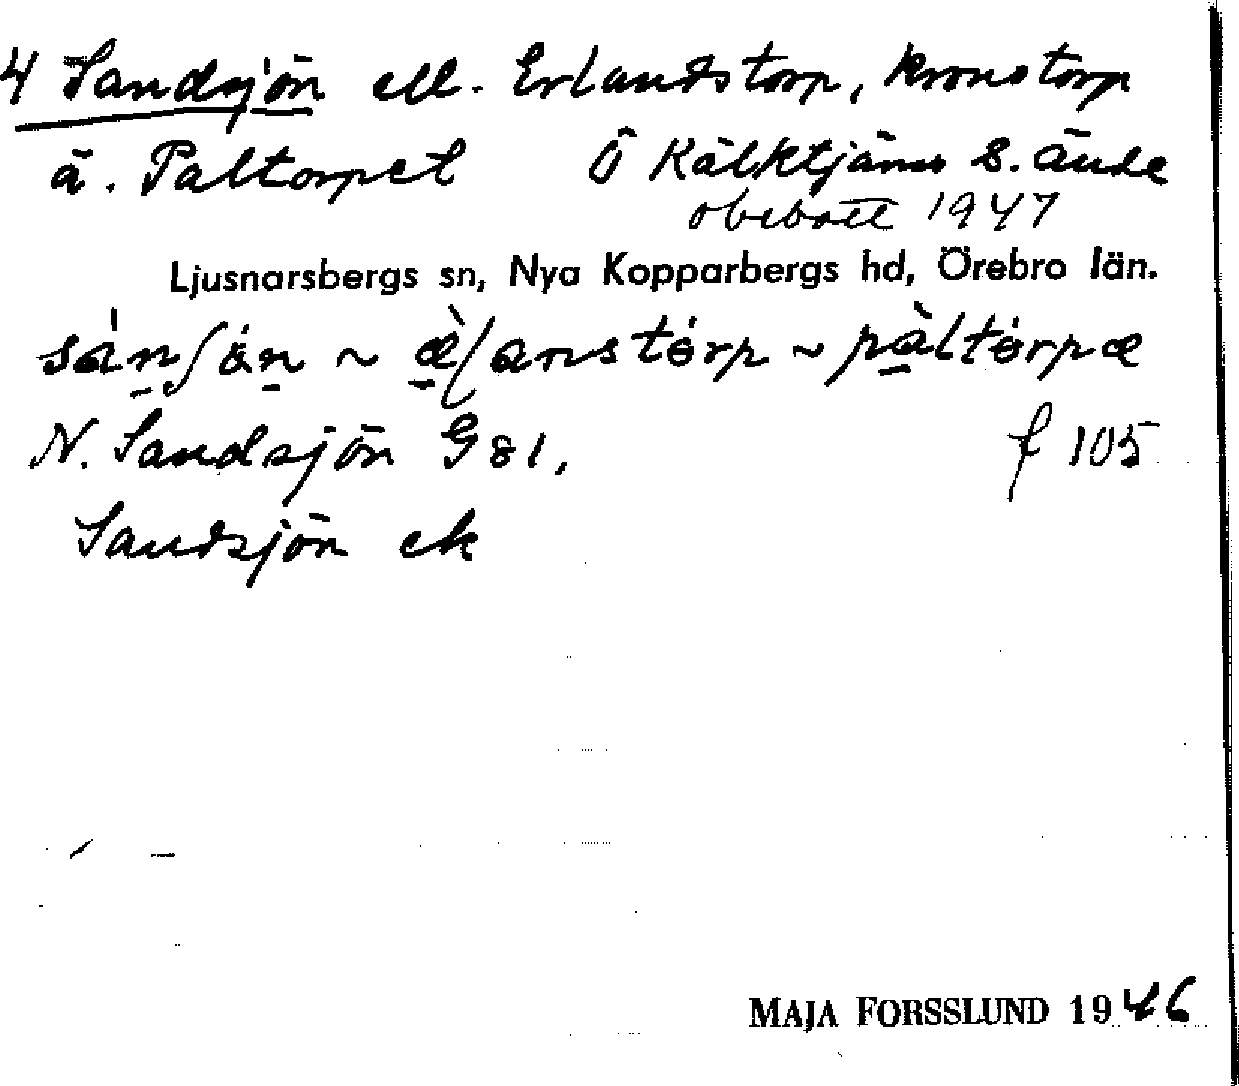 4 Sandsjön ell. Erlandstorp, kronotorp
ä. Paltorpet Ö Kälktjärns S. ände
obebott 1947
Ljusnarsbergs sn, Nya Kopparbergs hd, Örebro län.
N. Sandsjön G 81, f 105
Sandsjön ek
MAJA FORSSLUND 1946